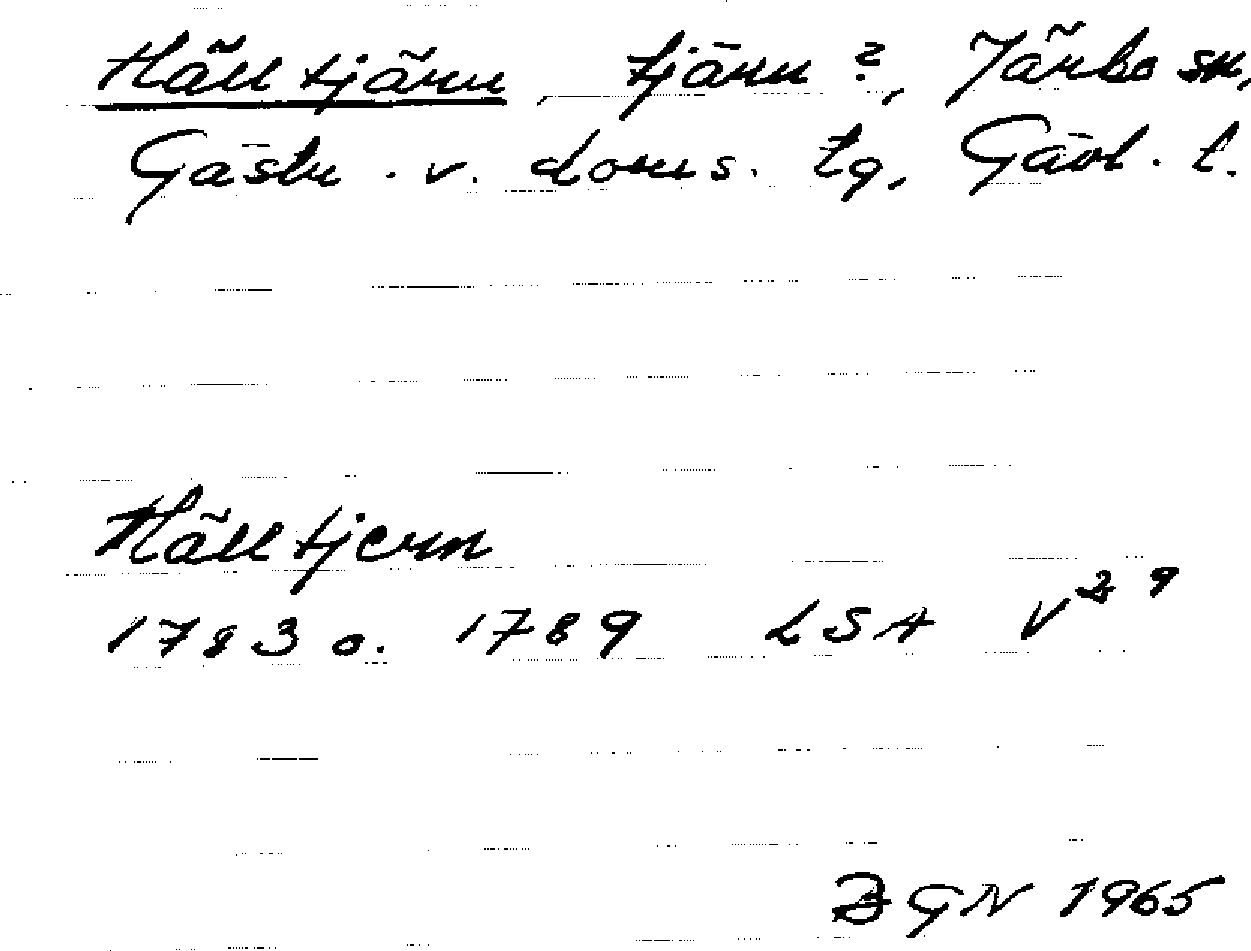 Hälltjärn, tjärn?, Järbo sn,
Gästr. v. doms. tg, Gävl. l.
Hälltjern
1783 o. 1789 LSA V² 9
BGN 1965